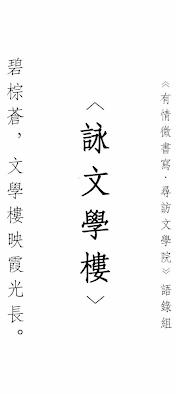 《有情微書寫．尋訪文學院》語錄組
〈詠文學樓〉
碧棕蒼，文學樓映霞光長。